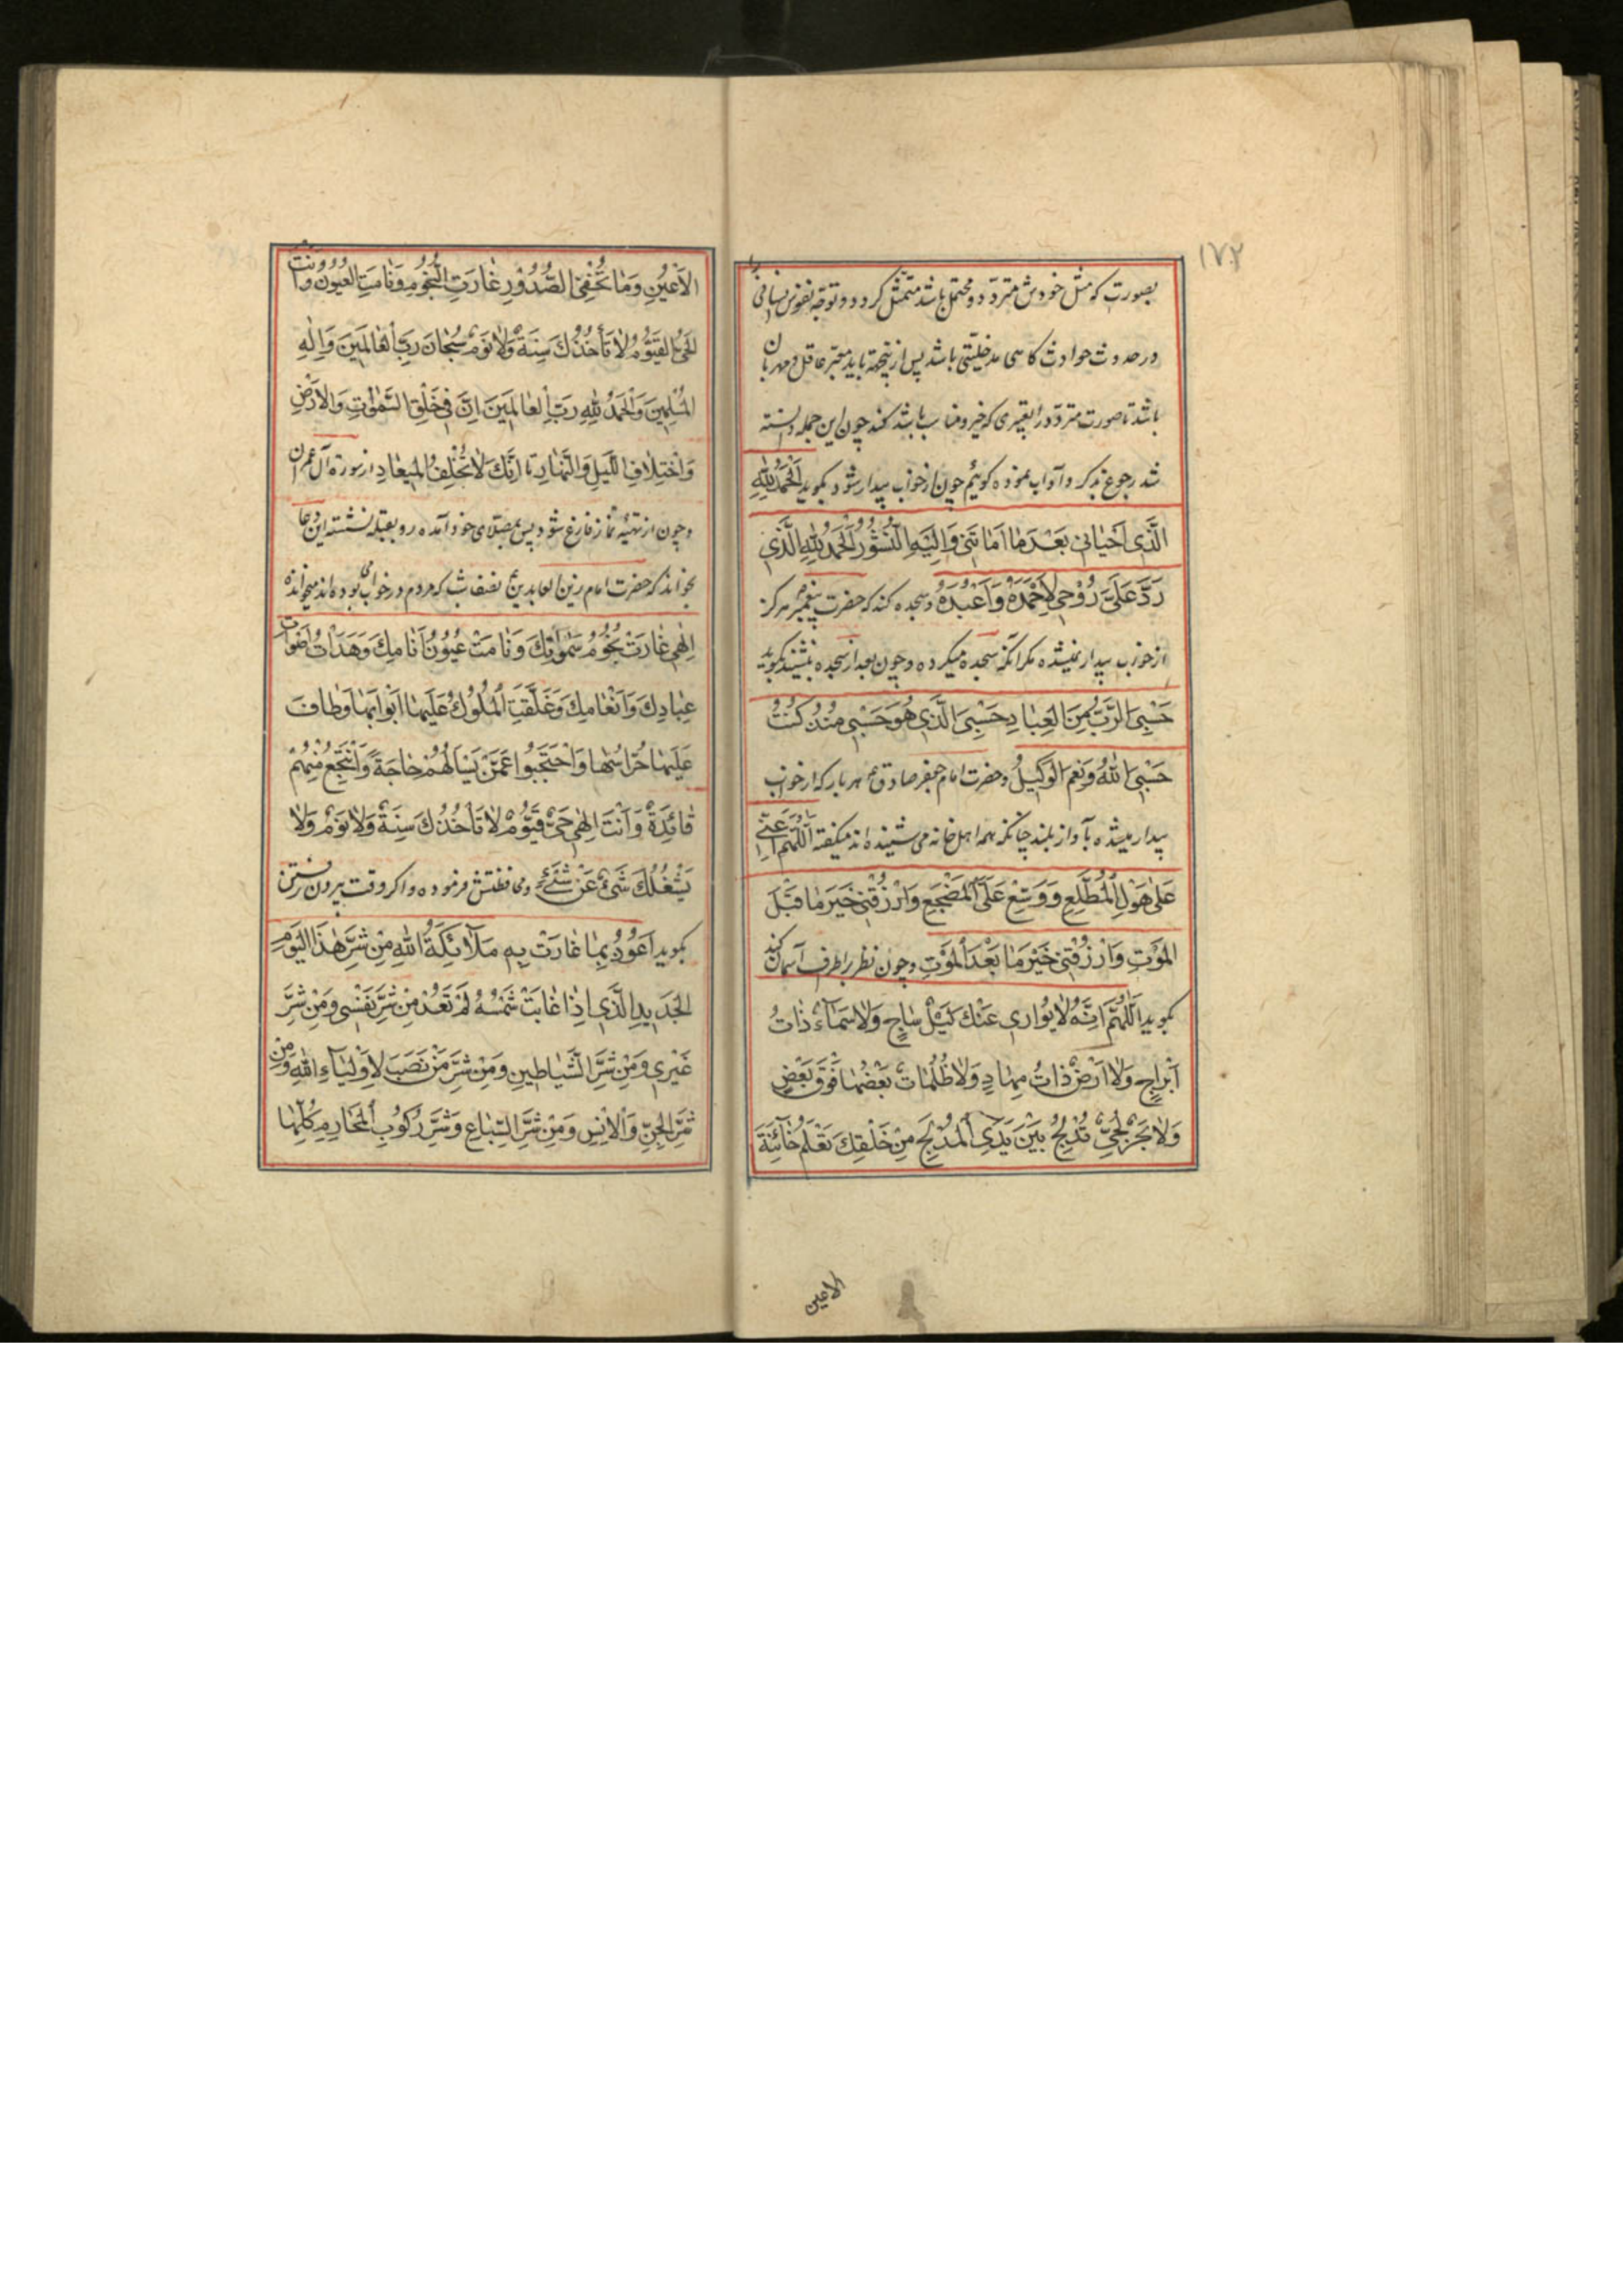 ۱۷۲
بصورت که مثل خودش متردد و محتمل باشد متمثل کردد و توجه نفوس انسانی را
در حدوث حوادث کاسی مدخلیتی باشد پس از ینجهة باید معبر عاقل و مهربان
باشد تا صورت متردد را بتعبیری که خیر و مناسب باشد کند چون این جمله دانسته
شد رجوع بذکر و آداب نموده کوئیم چون از خواب بیدار شود بکوید اَلْحَمْدُ لِلّٰهِ
الَّذِی اَحْیَانِی بَعْدَ مَا اَمَاتَنِی وَاِلَیْهِ النُّشُوْرُ اَلْحَمْدُ لِلّٰهِ الَّذِی
رَدَّ عَلَیَّ رُوْحِی لِاَحْمَدَهُ وَاَعْبُدَهُ و سجده کند که حضرت پیغمبر هرکز
از خواب بیدار نمیشده مکر آنکه سجده میکرده و چون بعد از سجده بنشیند بکوید
حَسْبِیَ الرَّبُّ مِنَ الْعِبَادِ حَسْبِیَ الَّذِی هُوَ حَسْبِی مُنْذُ کُنْتُ
حَسْبِیَ اللّٰهُ وَنِعْمَ الْوَکِیْلُ و حضرت امام جعفر صادق ع هر بار که از خواب
بیدار میشده بآواز بلند چنانکه همه اهل خانه می شنیده اند میکفته اَللّٰهُمَّ اَعِنِّی
عَلٰی هَوْلِ الْمُطَّلَعِ وَوَسِّعْ عَلَیَّ الْمَضْجَعَ وَارْزُقْنِی خَیْرَ مَا قَبْلَ
الْمَوْتِ وَارْزُقْنِی خَیْرَ مَا بَعْدَ الْمَوْتِ و چون نظر بر اطراف آسمان کند
بکوید اَللّٰهُمَّ اِنَّهُ لَا یُوَارِی عَنْكَ لَیْلٌ سَاجٍ وَلَا سَمَاءٌ ذَاتُ
اَبْرَاجٍ وَلَا اَرْضٌ ذَاتُ مِهَادٍ وَلَا ظُلُمَاتٌ بَعْضُهَا فَوْقَ بَعْضٍ
وَلَا بَحْرٌ لُجِّیٌّ تُدْلِجُ بَیْنَ یَدَیِ الْمُدْلِجِ مِنْ خَلْقِكَ تَعْلَمُ خَائِنَةَ
الاعین
الْاَعْیُنِ وَمَا تُخْفِی الصُّدُوْرِ غَارَتِ النُّجُوْمُ وَنَامَتِ الْعُیُوْنُ وَاَنْتَ
الْحَیُّ الْقَیُّوْمُ لَا تَأْخُذُكَ سِنَةٌ وَلَا نَوْمٌ سُبْحَانَ رَبِّ الْعَالَمِیْنَ وَاِلٰهِ
الْمُسْلِمِیْنَ وَالْحَمْدُ لِلّٰهِ رَبِّ الْعَالَمِیْنَ اِنَّ فِی خَلْقِ السَّمٰوَاتِ وَالْاَرْضِ
وَاخْتِلَافِ اللَّیْلِ وَالنَّهَارِ تا اِنَّكَ لَا تُخْلِفُ الْمِیْعَادِ از سورة آل عمران
و چون از تهیّه نماز فارغ شود پس بمصلای خود آمده رو بقبله نشسته این دعا
بخواند که حضرت امام زین العابدین ع نصف شب که مردم در خواب بوده اند میخوانده
اِلٰهِی غَارَتْ نُجُوْمُ سَمٰوَاتِكَ وَنَامَتْ عُیُوْنُ اَنَامِكَ وَهَدَاَتْ اَصْوَاتُ
عِبَادِكَ وَاَنْعَامِكَ وَغَلَّقَتِ الْمُلُوْكُ عَلَیْهَا اَبْوَابَهَا وَطَافَ
عَلَیْهَا حُرَّاسُهَا وَاحْتَجَبُوْا عَمَّنْ یَسْأَلُهُمْ حَاجَةً وَاَنْتَجِعُ مِنْهُمْ
فَائِدَةً وَاَنْتَ اِلٰهِی حَیٌّ قَیُّوْمٌ لَا تَأْخُذُكَ سِنَةٌ وَلَا نَوْمٌ وَلَا
یَشْغَلُكَ شَیْءٌ عَنْ شَیْءٍ و محافظتش فرموده و اکر وقت بیرون رفتن
بکوید اَعُوْذُ بِمَا عَاذَتْ بِهِ مَلَائِکَةُ اللّٰهِ مِنْ شَرِّ هٰذَا الْیَوْمِ
الْجَدِیْدِ الَّذِی اِذَا غَابَتْ شَمْسُهُ لَمْ تَعُدْ مِنْ شَرِّ نَفْسِی وَمِنْ شَرِّ
غَیْرِی وَمِنْ شَرِّ الشَّیَاطِیْنِ وَمِنْ شَرِّ مَنْ نَصَبَ لِاَوْلِیَاءِ اللّٰهِ وَمِنْ
شَرِّ الْجِنِّ وَالْاِنْسِ وَمِنْ شَرِّ السِّبَاعِ وَشَرِّ رُکُوْبِ الْمَحَارِمِ کُلِّهَا